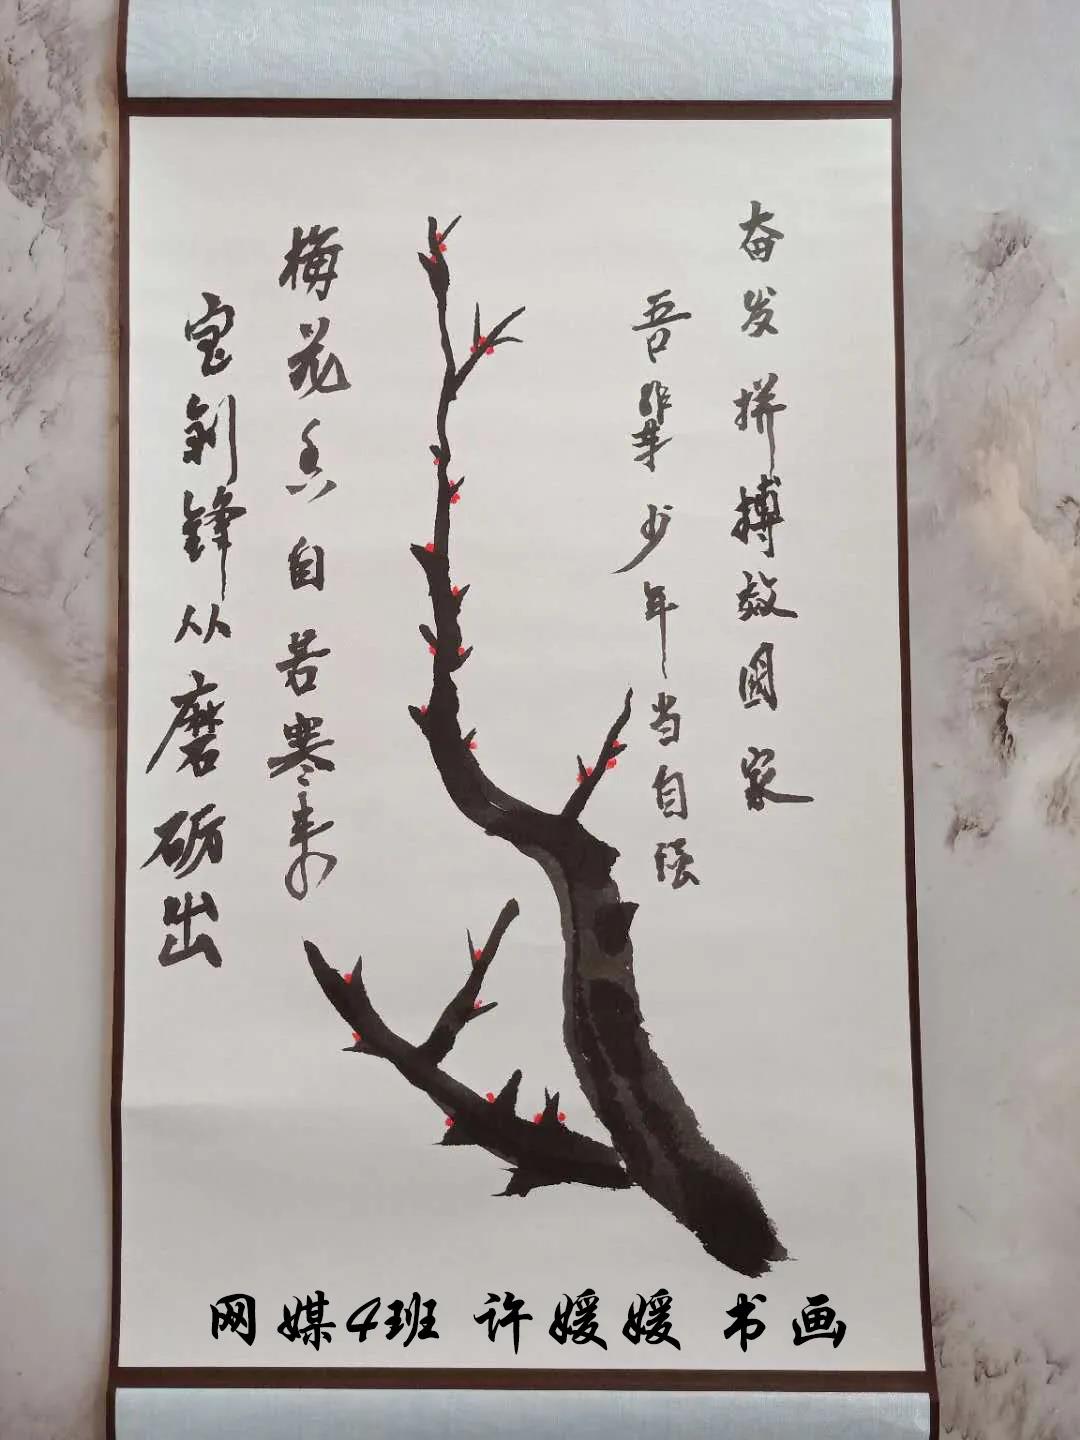 奋发拼搏效国家
吾辈少年当自强
梅花香自苦寒来
宝剑锋从磨砺出
网媒4班 许媛媛 书画